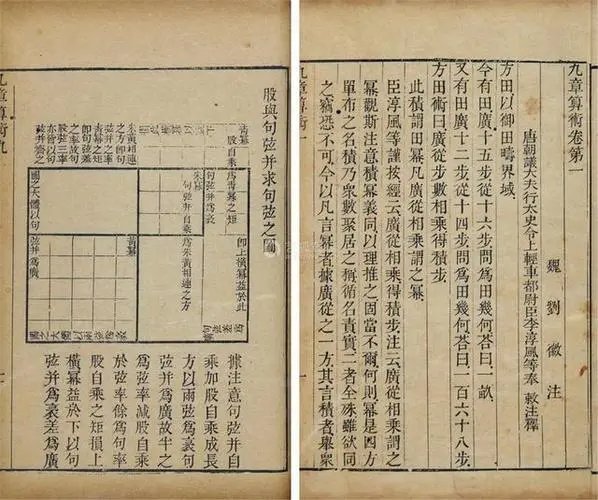 九章算術卷第一
魏劉徽注
唐朝議大夫行太史令上輕車都尉臣李淳風等奉 敕注釋
方田以御田疇界域
今有田廣十五步從十六步問爲田幾何荅曰一畝
又有田廣十二步從十四步問爲田幾何荅曰一百六十八步
方田術曰廣從步數相乘得積步
此積謂田冪凡廣從相乘謂之冪
臣淳風等謹按經云廣從相乘得積步注云廣從相乘謂之
冪觀斯注意積冪義同以理推之固當不爾何則冪是四方
單布之名積乃衆數聚居之稱循名責實二者全殊雖欲同
之竊恐不可今以凡言冪者據廣從之一方其言積者舉衆
九章算術一
股與句弦并求句弦之圖
青冪
股自乘爲青冪之矩
句弦并爲袤
朱冪
句弦并自乘爲朱黃相連之方
即上橫冪益於此
黃冪
弦并爲廣
據注意句弦并自
乘加股自乘成長
方以兩弦爲袤句
弦并爲廣故半之
爲弦率減股自乘
於弦率餘爲句率
股自乘之矩損上
橫冪益於下以句
弦并爲袤差爲廣
九章算術九